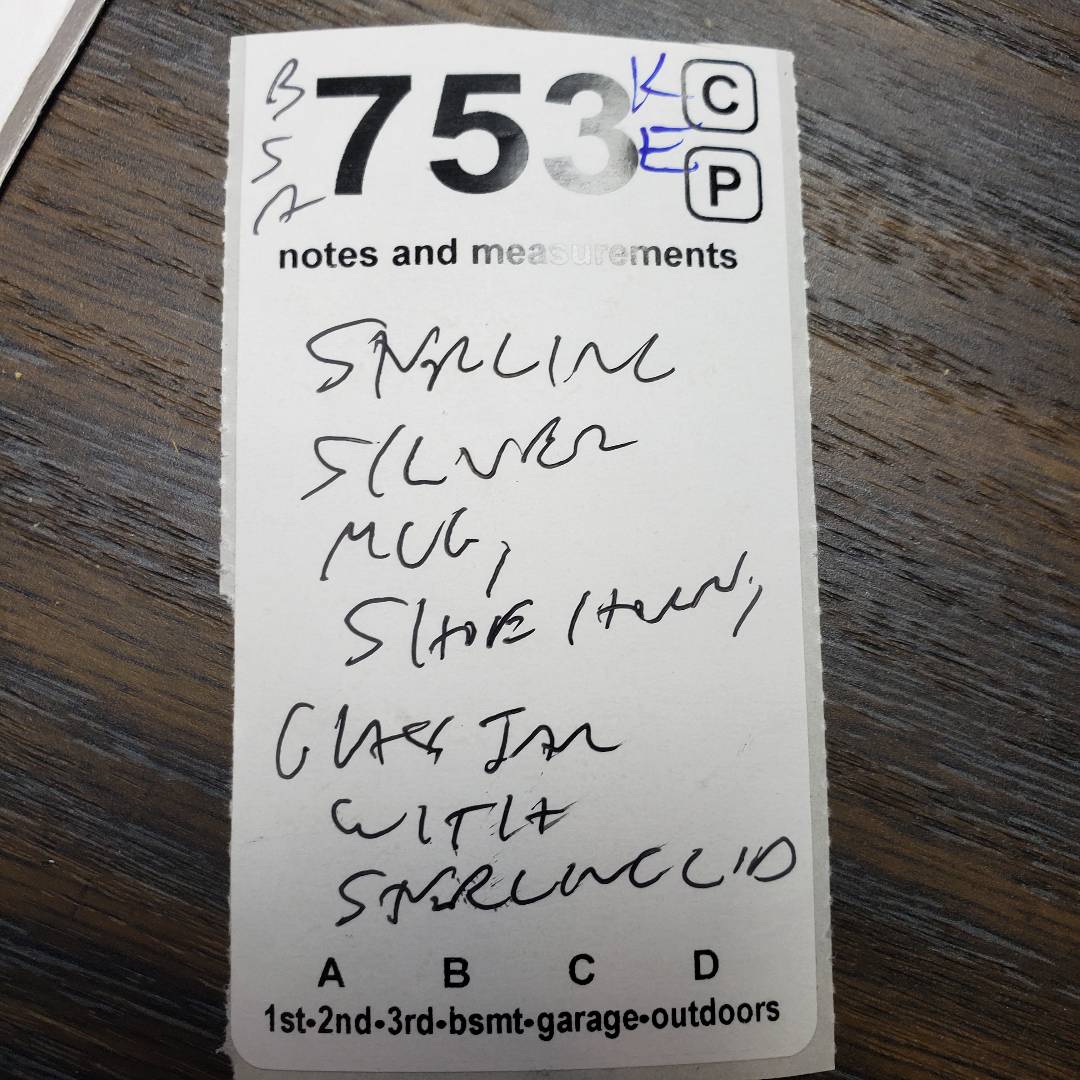 B 753 K C
S E P
A
notes and measurements
STERLING
SILVER
MUG,
SHOE HORN,
GLASS JAR
WITH
STERLING LID
A B C D
1st-2nd-3rd-bsmt-garage-outdoors